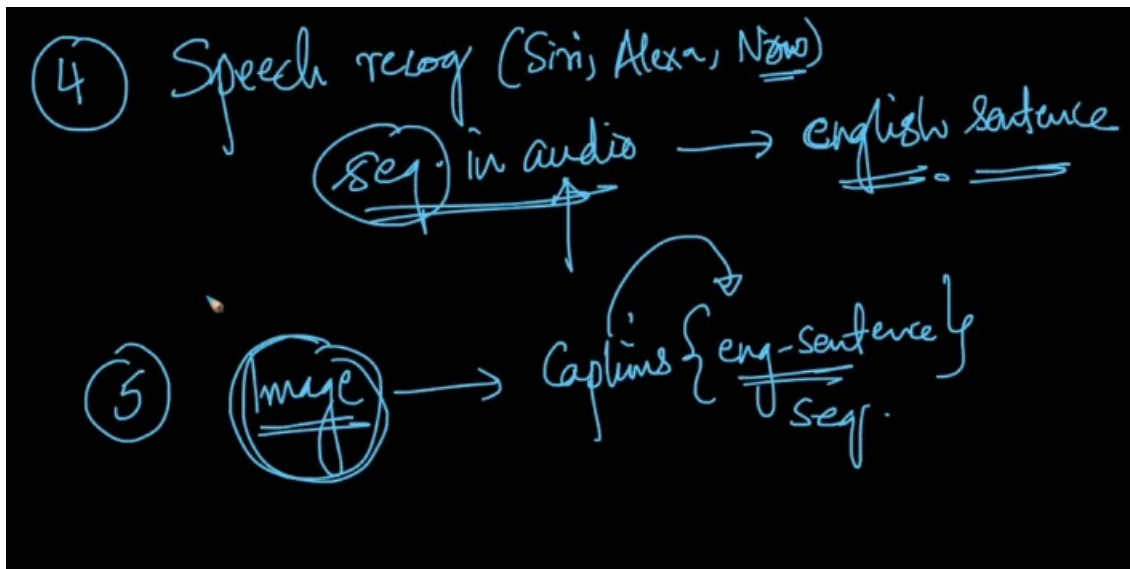 4 Speech recog (Siri, Alexa, Now)
seq. in audio → english sentence
5 Image → Captions {eng-sentence}
seq.